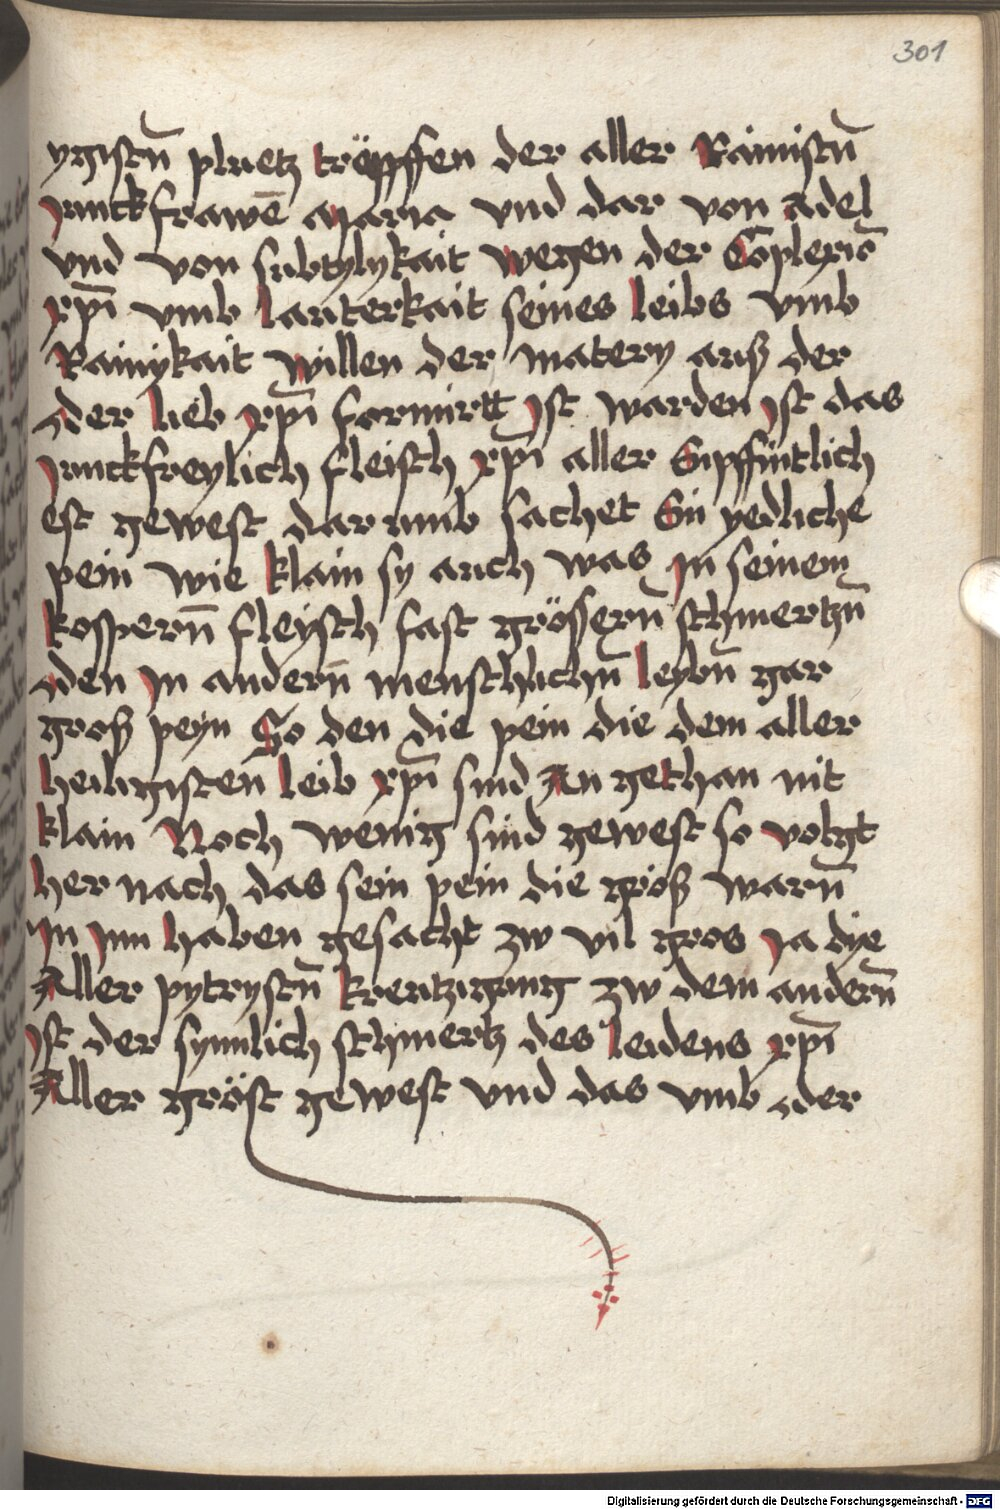 301
ygistn̄ pluetz tröpffen der aller Rainistn̄
Junckfrawē Maria vnd dar von adel
vnd von subtylykait wegen der Coplexiō
xp̄i vmb lauterkait seines leibs vmb
Rainykait willen der matery auß der
der lieb xp̄i formirtt Ist warden Ist das
Junckfreylich fleisch xp̄i aller Enpffintlich
est gewest dar vmb sachet Ein yedliche
pein wie klain sy auch was In seinem
kospern̄ fleysch fast grössern̄ schmertzn̄
den In andern̄ menschlichn̄ leybn̄ gar
groß peyn So den die pein die dem aller
heiligisten leib xp̄i sind An gethan nit
klain Noch wenig sind gewest so volgt
her nach das sein pein die groß warn̄
In Inn haben gesacht zw vil gros Ja dye
Aller pytrystn̄ kreutzigung zw dem andern̄
Ist der synnlich schmertz des leidens xp̄i
Aller gröst gewest vnd das vmb der
Digitalisierung gefördert durch die Deutsche Forschungsgemeinschaft - DFG